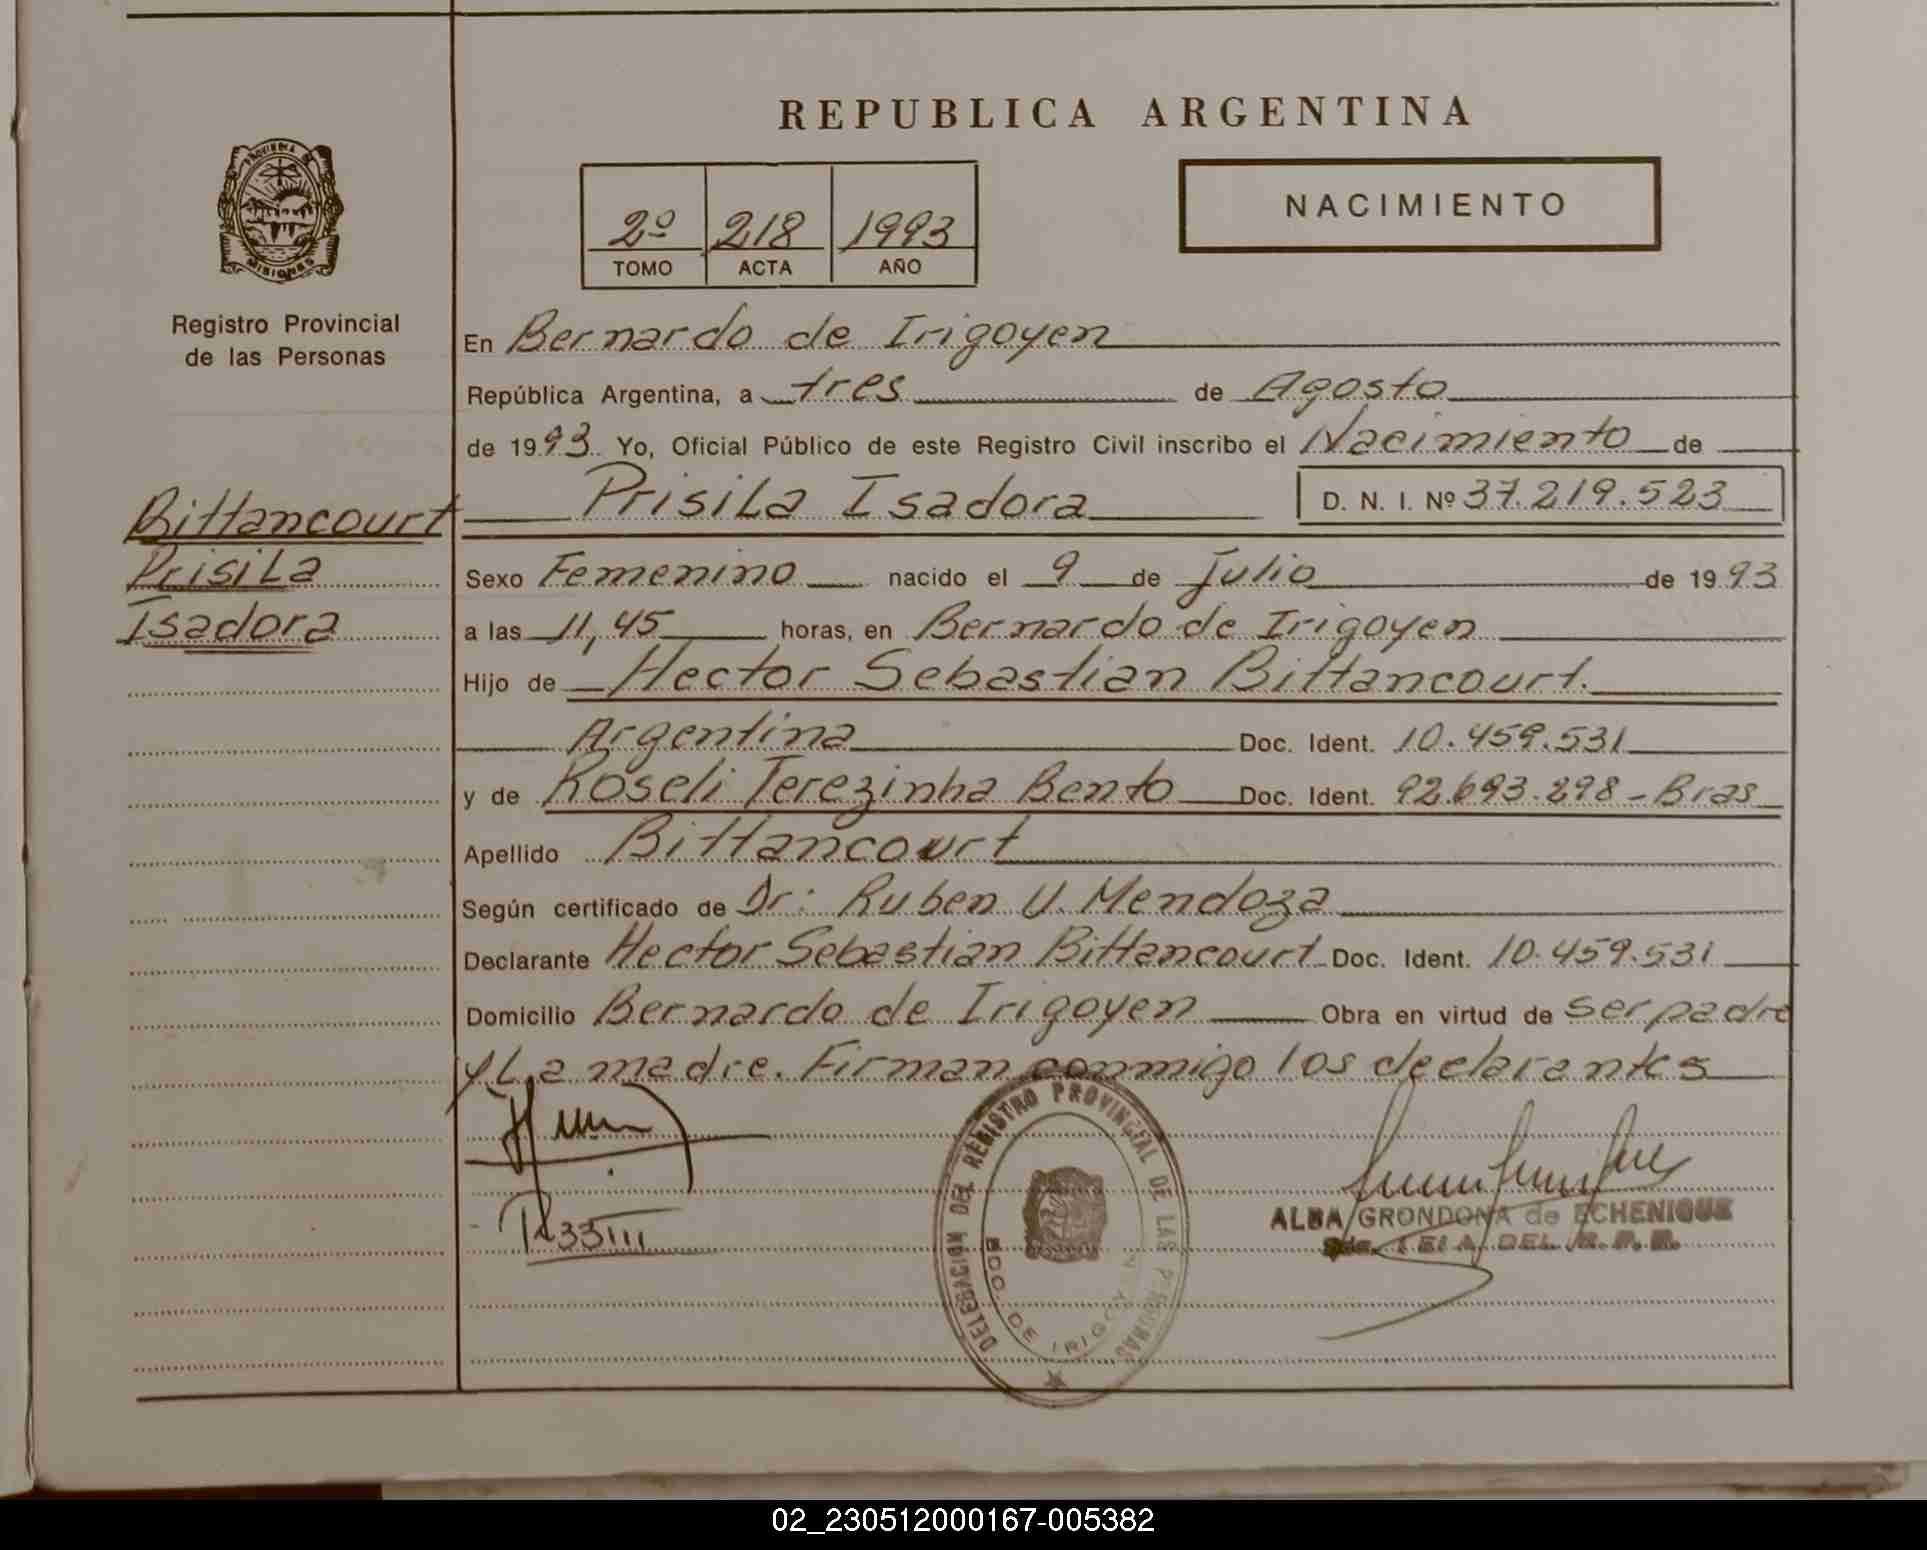 REPUBLICA ARGENTINA
PROVINCIA DE
MISIONES
Registro Provincial
de las Personas
2º 218 1993
TOMO ACTA AÑO
NACIMIENTO
En Bernardo de Irigoyen
República Argentina, a tres de Agosto
de 1993 Yo, Oficial Público de este Registro Civil inscribo el Nacimiento de
Prisila Isadora D. N. I. Nº 37.219.523
Bittancourt
Prisila
Isadora
Sexo Femenino nacido el 9 de Julio de 1993
a las 11,45 horas, en Bernardo de Irigoyen
Hijo de Hector Sebastian Bittancourt.
Argentina Doc. Ident. 10.459.531
y de Roseli Terezinha Bento Doc. Ident. 92.693.298 - Bras
Apellido Bittancourt
Según certificado de Dr: Ruben U. Mendoza
Declarante Hector Sebastian Bittancourt Doc. Ident. 10.459.531
Domicilio Bernardo de Irigoyen Obra en virtud de ser padre
y La madre. Firman conmigo los declarantes
DELEGACION DEL REGISTRO PROVINCIAL DE LAS PERSONAS
BDO. DE IRIGOYEN
ALBA GRONDONA de ECHENIQUE
DEL R. P. P.
02_230512000167-005382